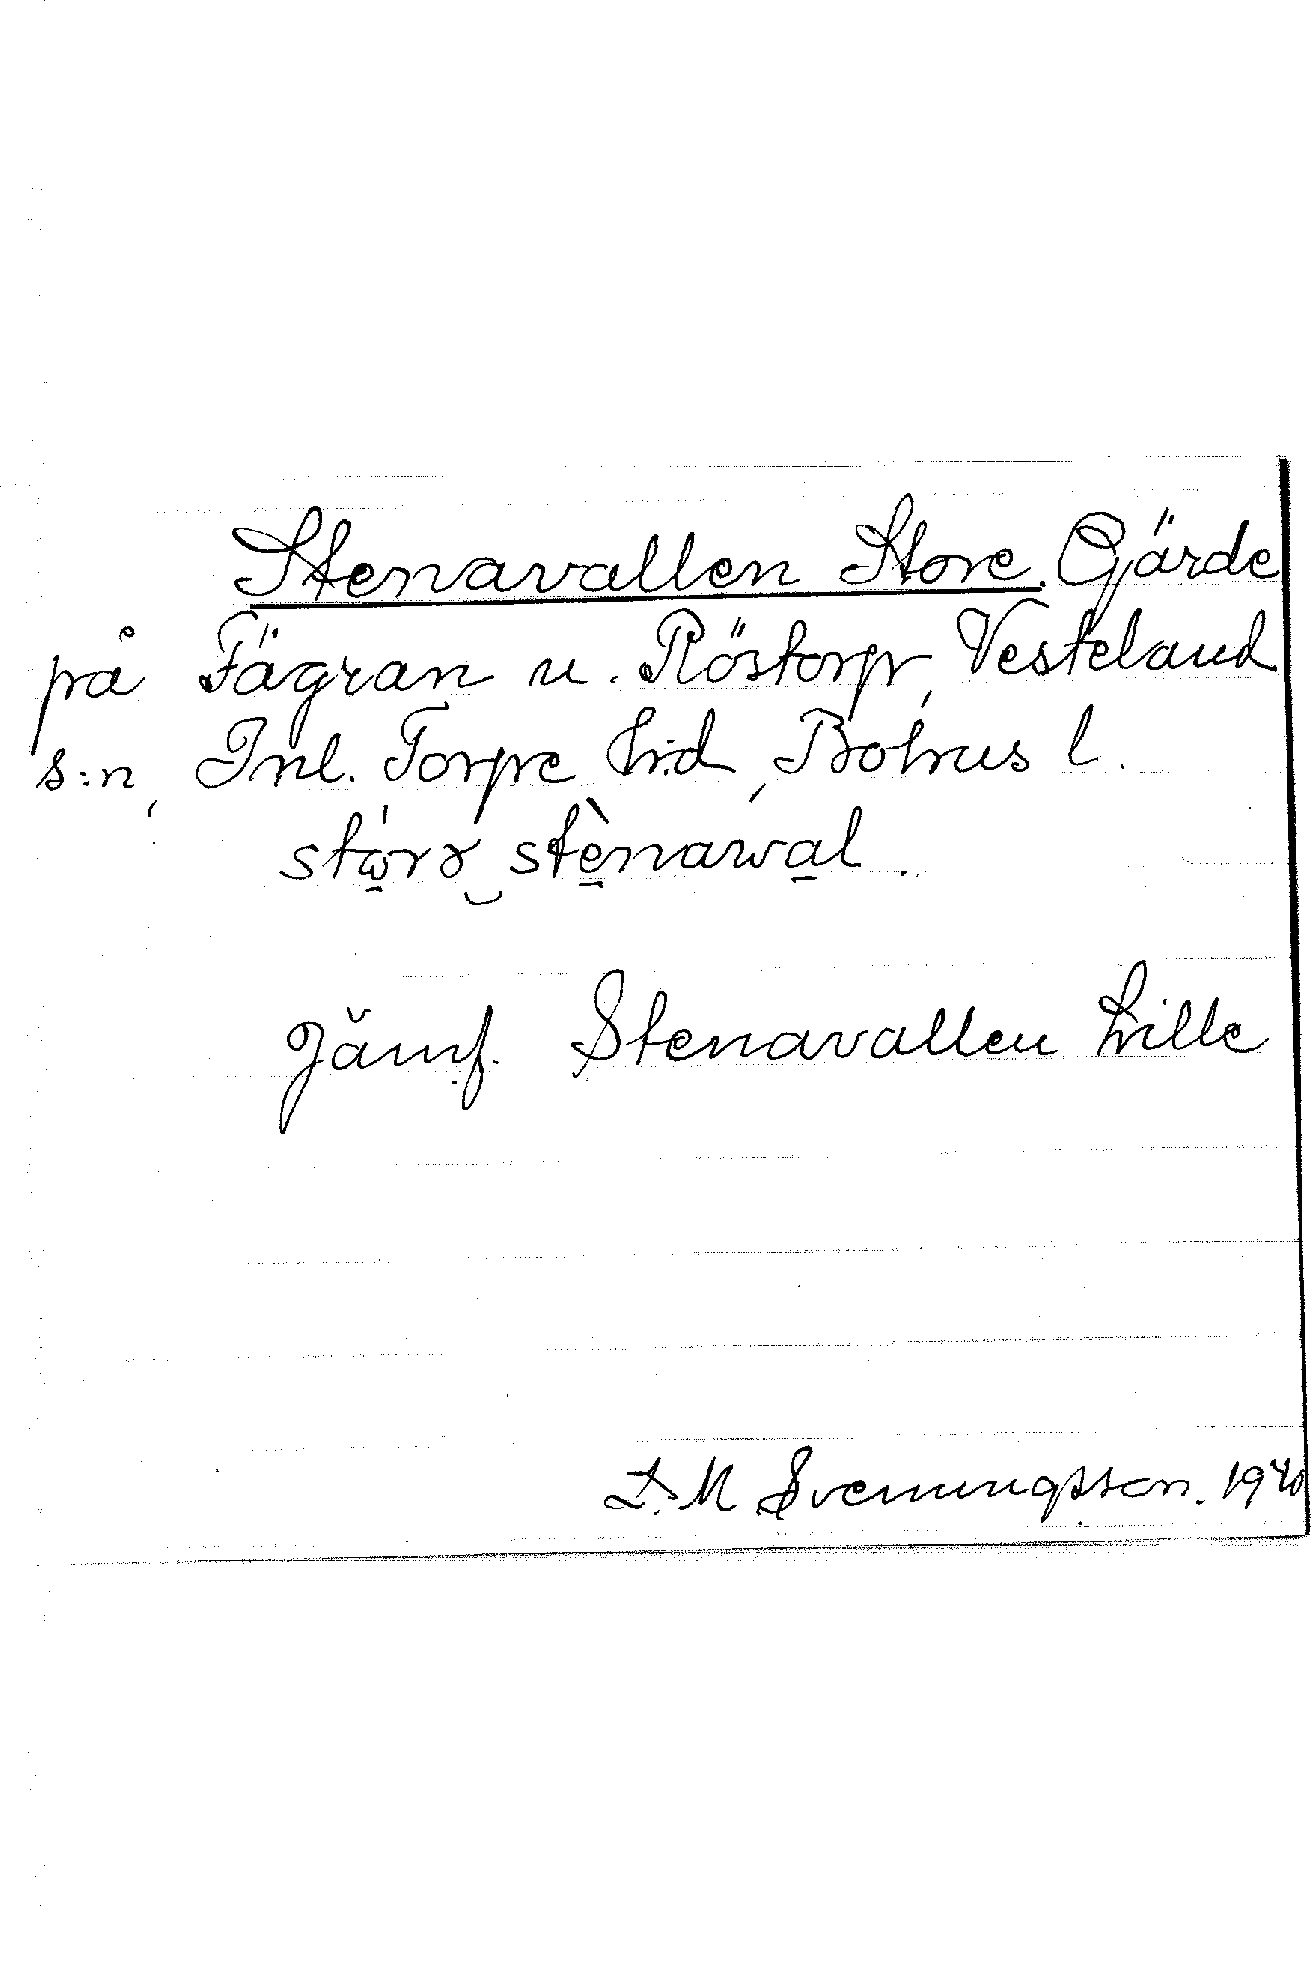 Stenavallen Store. Gjärde
på Fägran u. Röstorp, Vesteland
s:n, Inl. Torpe hd, Bohus l.
stenawal.
Jämf. Stenavallen Lille
D. M Svenningsson. 1940